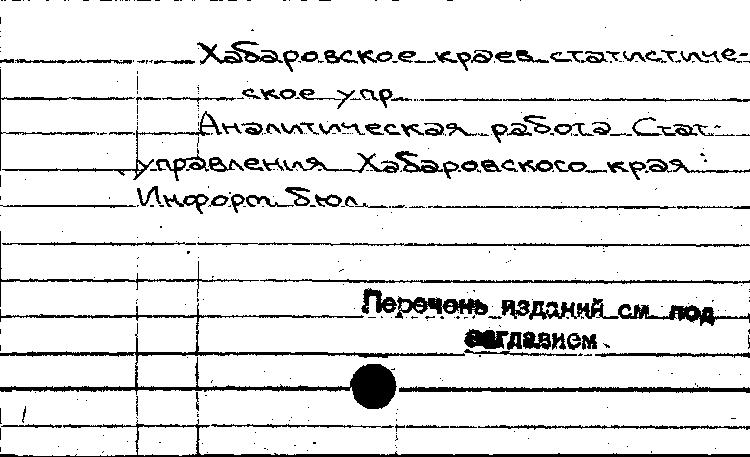 Хабаровское краев. статистиче-
ское упр.
Аналитическая работа Стат-
управления Хабаровского края:
Информ. бюл.
Перечень изданий см под
заглавием.